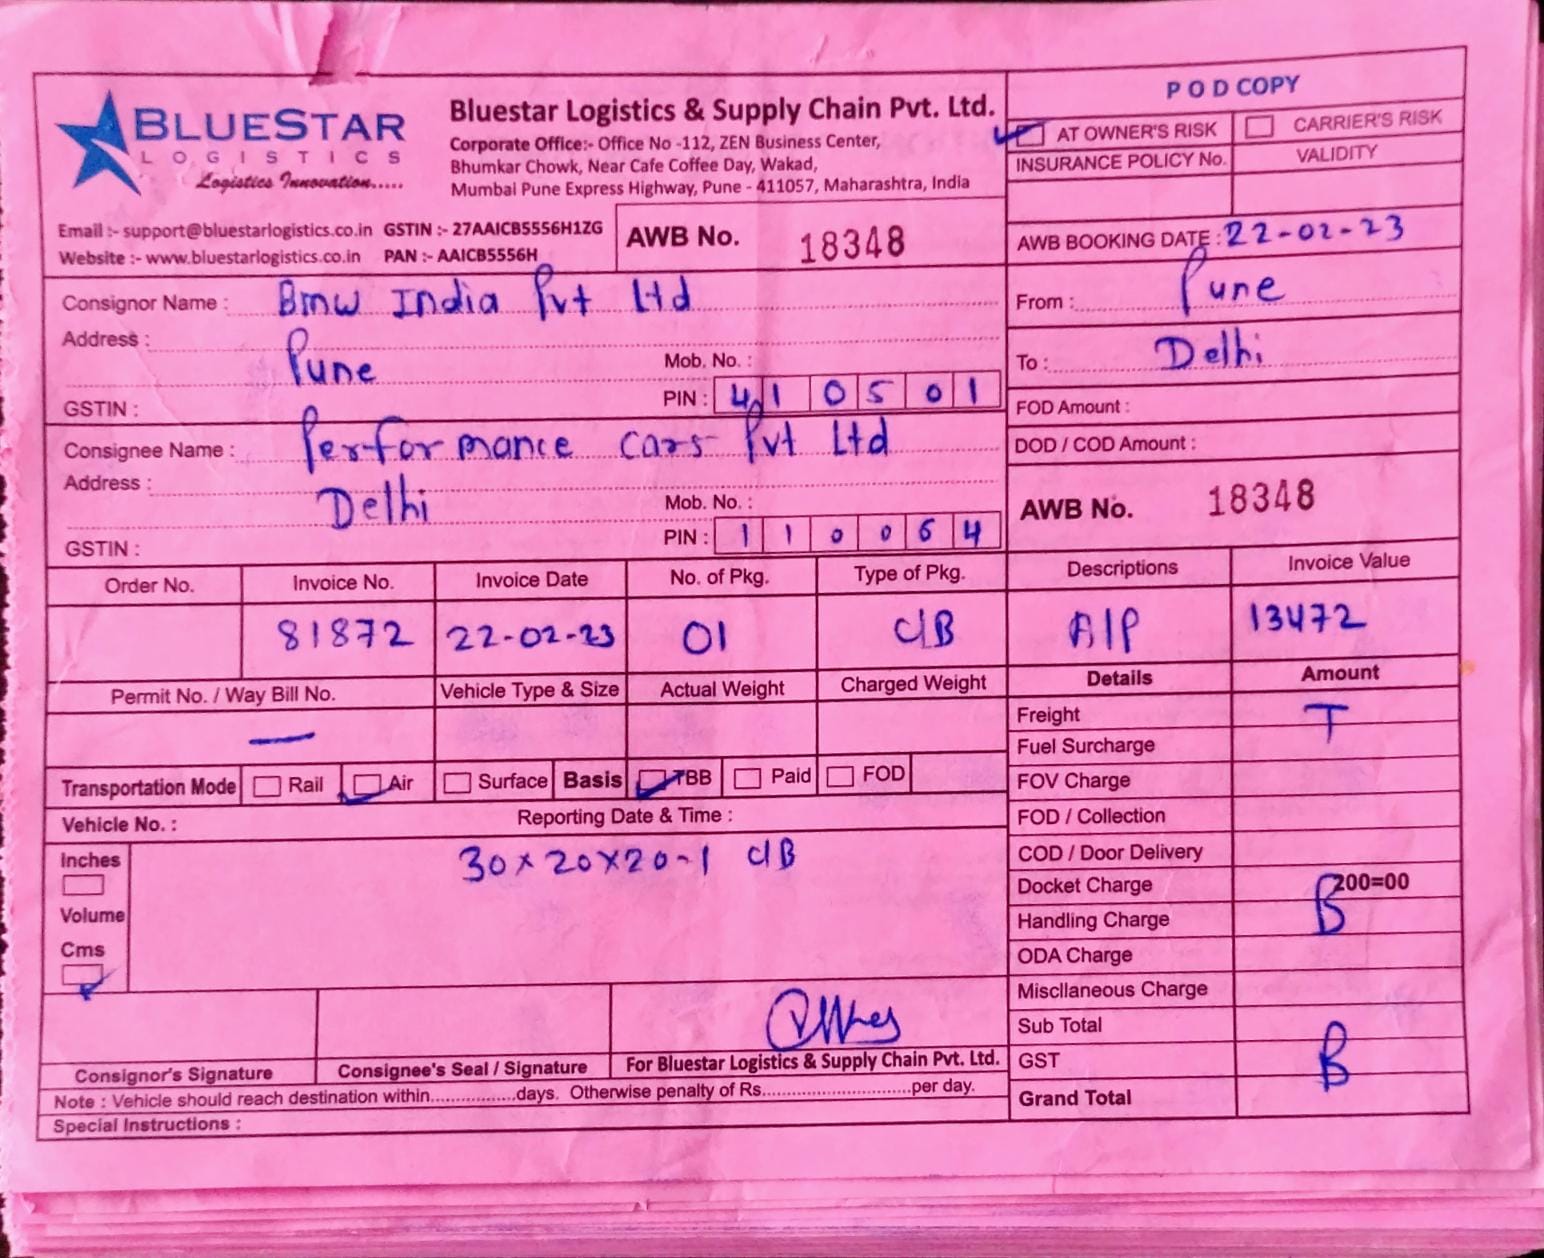 BLUESTAR
LOGISTICS
Logistics Innovation.....
Bluestar Logistics & Supply Chain Pvt. Ltd.
Corporate Office:- Office No -112, ZEN Business Center,
Bhumkar Chowk, Near Cafe Coffee Day, Wakad,
Mumbai Pune Express Highway, Pune - 411057, Maharashtra, India
POD COPY
AT OWNER'S RISK CARRIER'S RISK
INSURANCE POLICY No. VALIDITY
Email :- support@bluestarlogistics.co.in GSTIN :- 27AAICB5556H1ZG
Website :- www.bluestarlogistics.co.in PAN :- AAICB5556H
AWB No. 18348
AWB BOOKING DATE : 22-02-23
Consignor Name : Bmw India Pvt Ltd
Address : Pune
Mob. No. :
PIN : 410501
GSTIN :
From : Pune
To : Delhi
FOD Amount :
Consignee Name : Performance cars Pvt Ltd
Address : Delhi
Mob. No. :
PIN : 110064
GSTIN :
DOD / COD Amount :
AWB No. 18348
Order No. Invoice No. Invoice Date No. of Pkg. Type of Pkg. Descriptions Invoice Value
81872 22-02-23 01 C/B A/P 13472
Permit No. / Way Bill No. Vehicle Type & Size Actual Weight Charged Weight Details Amount
—
Freight T
Fuel Surcharge
Transportation Mode Rail Air Surface Basis TBB Paid FOD
FOV Charge
Vehicle No. : Reporting Date & Time :
FOD / Collection
Inches
30×20×20-1 C/B
COD / Door Delivery
Docket Charge 200=00
Volume
Handling Charge B
Cms
ODA Charge
Miscllaneous Charge
Sub Total
GST B
Consignor's Signature Consignee's Seal / Signature For Bluestar Logistics & Supply Chain Pvt. Ltd.
Note : Vehicle should reach destination within.................days. Otherwise penalty of Rs..............................per day.
Grand Total
Special Instructions :